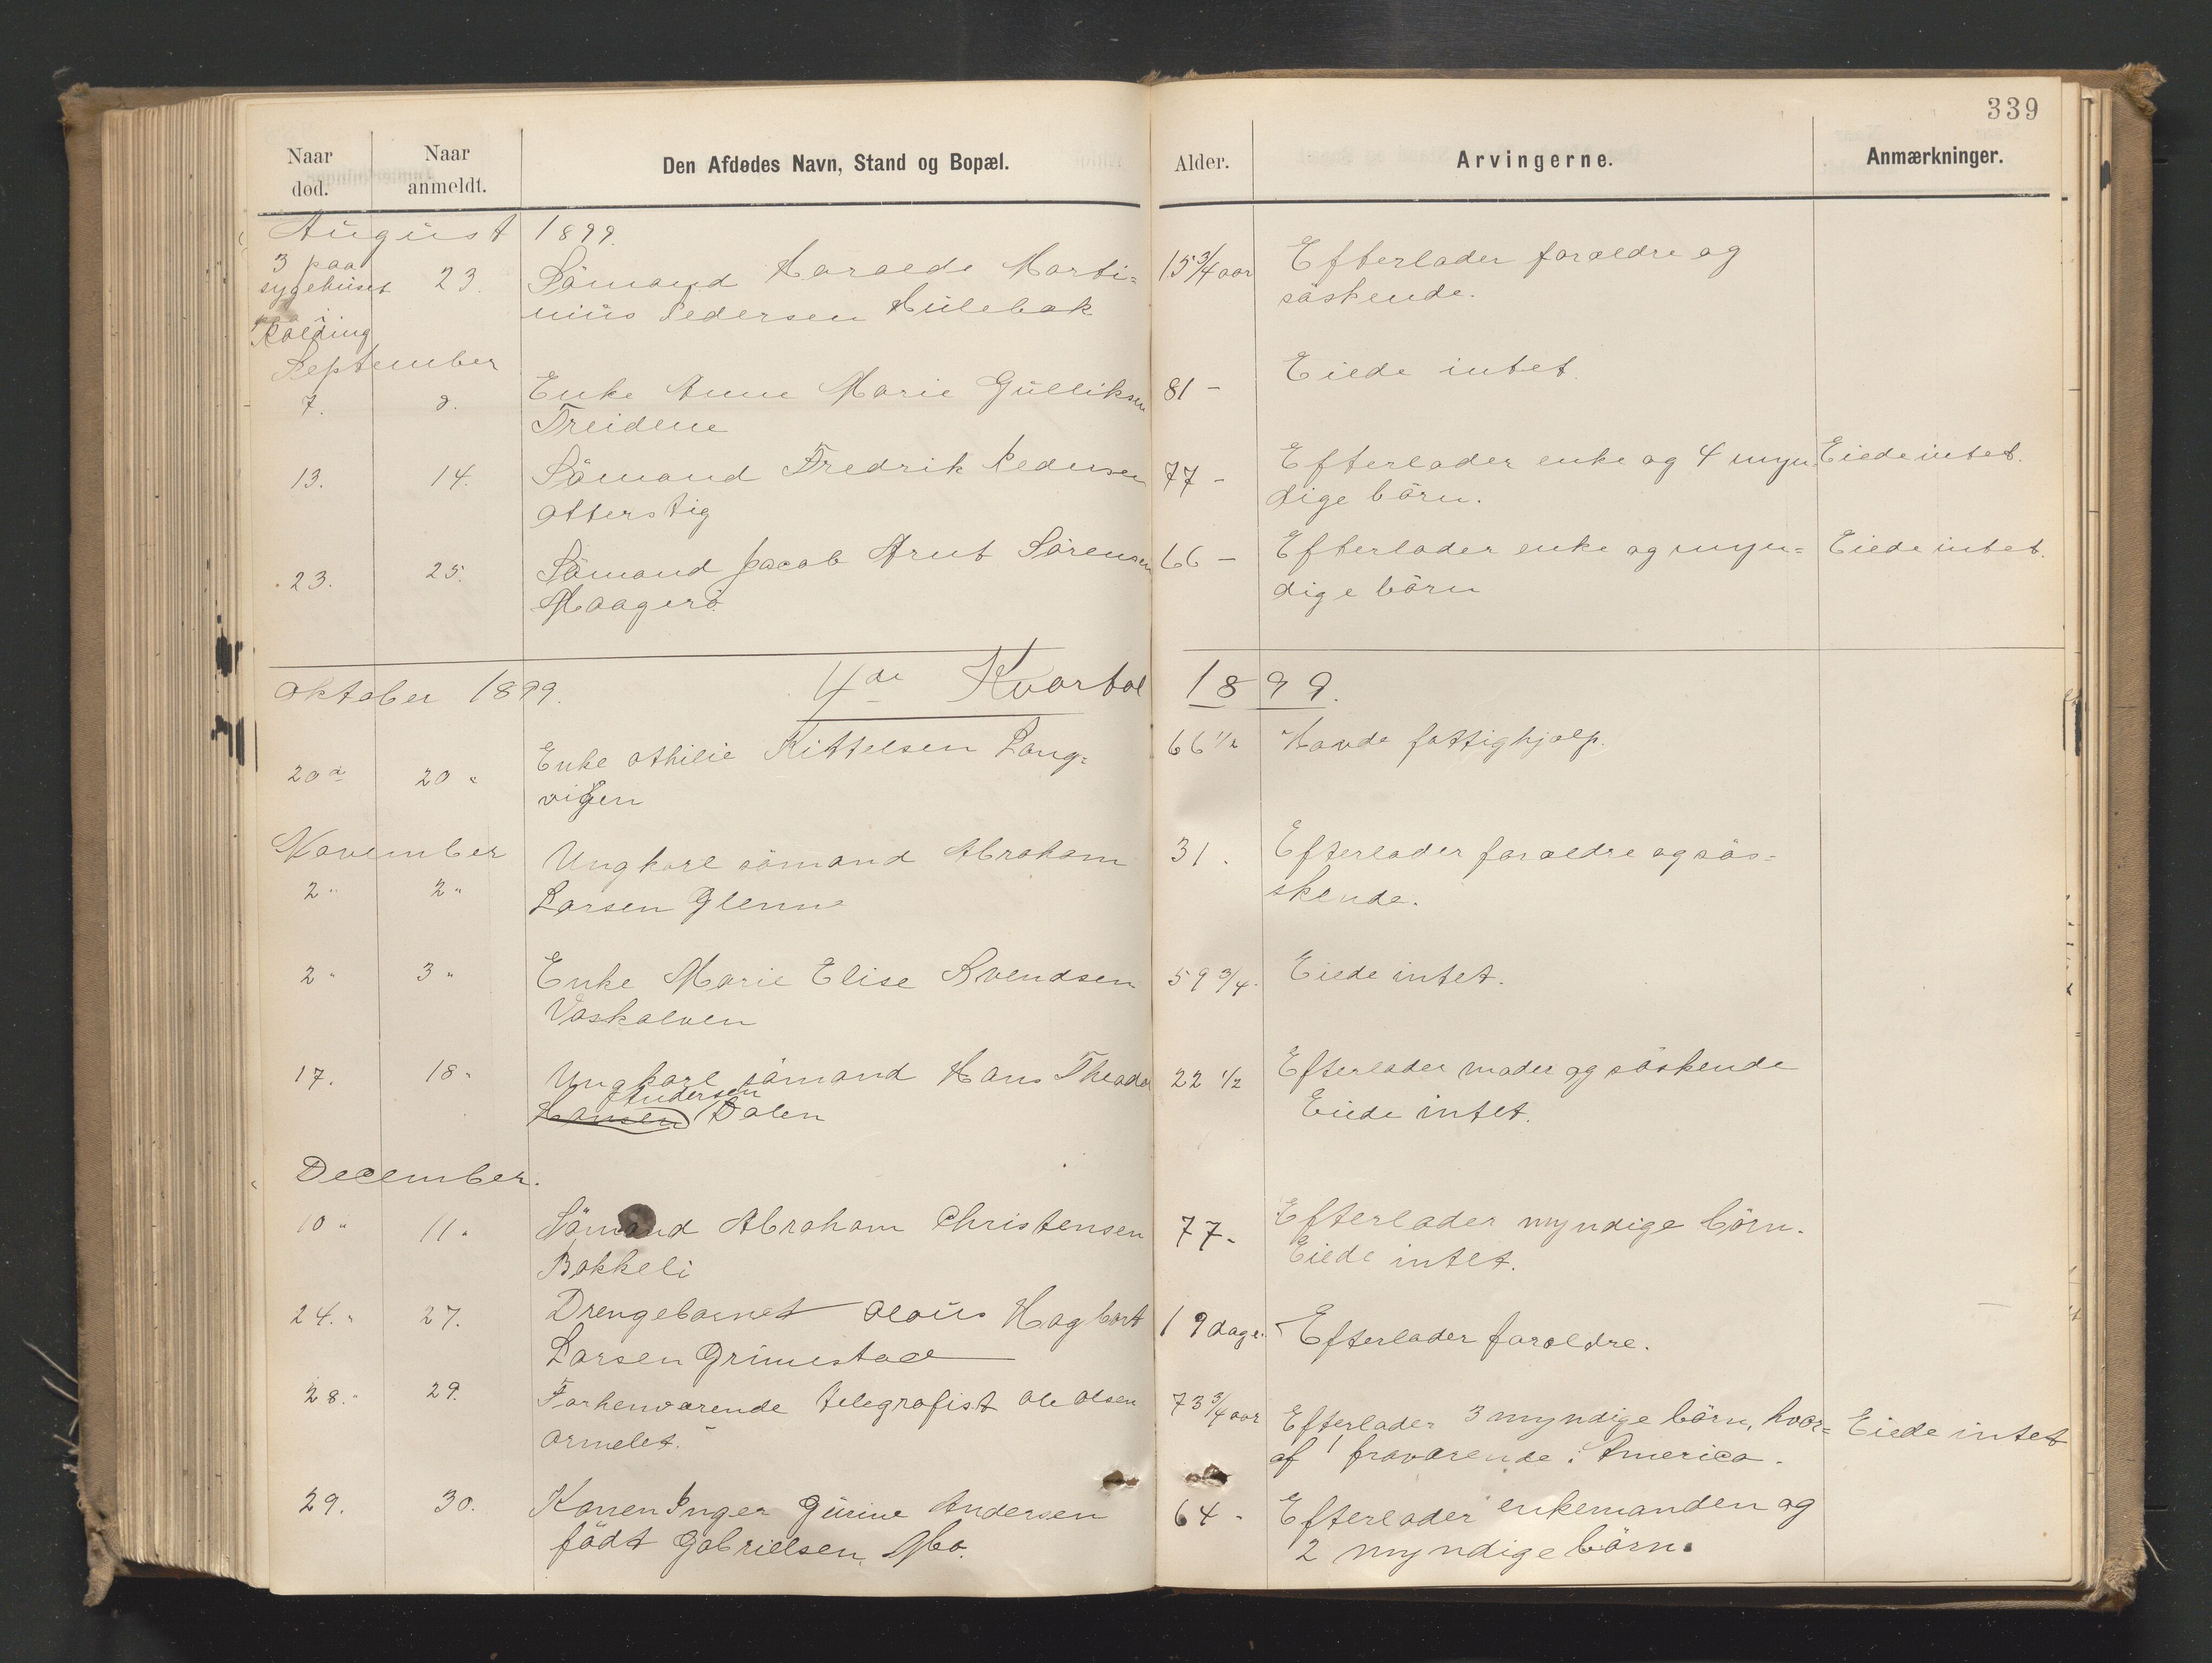 339
Naar død.
Naar anmeldt.
Den Afdødes Navn, Stand og Bopæl.
Alder.
Arvingerne.
Anmærkninger.
August 1899.
3 paa sygehuset Kolding
23.
Sömand Haralds Marti=
nius Pedersen Hulebak
15 3/4 aar
Efterlader foraeldre og
söskende.
September
7.
8.
Enke Anne Marie Gulliksen
Treidene
81 -
Eiede intet.
13.
14.
Sömand Fredrik Pedersen
Otterstig
77 -
Efterlader enke og 4 myn=
dige börn.
Eiede intet.
23.
25.
Sömand Jacob Arnt Sörensen
Maagerö.
66 -
Efterlader enke og myn=
dige börn
Eiede intet.
4de Kvartal 1899.
Oktober 1899.
20de
20 "
Enke Othilie Kittelsen Lang=
vigen
66 1/2
Havde fattighjælp.
November
2 "
2 "
Ungkarl sömand Abraham
Larsen Glenne
31.
Efterlader foraeldre og sös=
skende.
2 "
3 "
Enke Marie Elise Svendsen
Vaskalven
59 3/4.
Eiede intet.
17.
18 "
Ungkarl sömand Hans Theodor
Andersen
Hansen Dalen
22 1/2
Efterlader moder og söskende
Eiede intet.
December.
10 "
11 "
Sömand Abraham Christensen
Bakkeli
77 -
Efterlader myndige börn.
Eiede intet.
24. "
27.
Drengebarnet Olaus Hagbart
Larsen Grimestad
19 dage.
Efterlader foraeldre.
28. "
29.
Forhenværende telegrafist Ole Olsen
Ormelet.
73 3/4 aar
Efterlader 3 myndige börn, hvor=
af 1 fraværende i America.
Eiede intet
29.
30.
Karen Inger Gurine Andersen
födt Gabrielsen, Mo.
64 -
Efterlader enkemanden og
2 myndige börn.